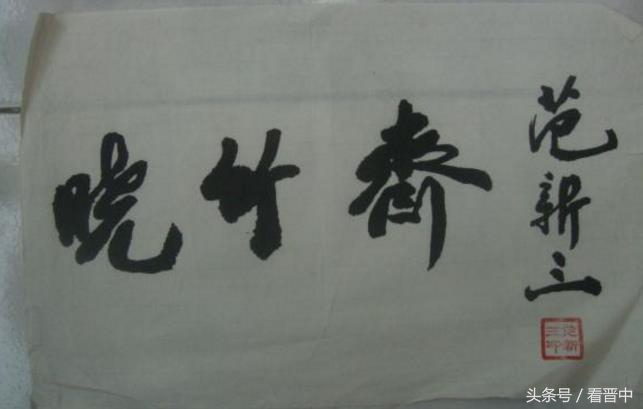 晓竹斋
范新三
范新三印
头条号／看晋中